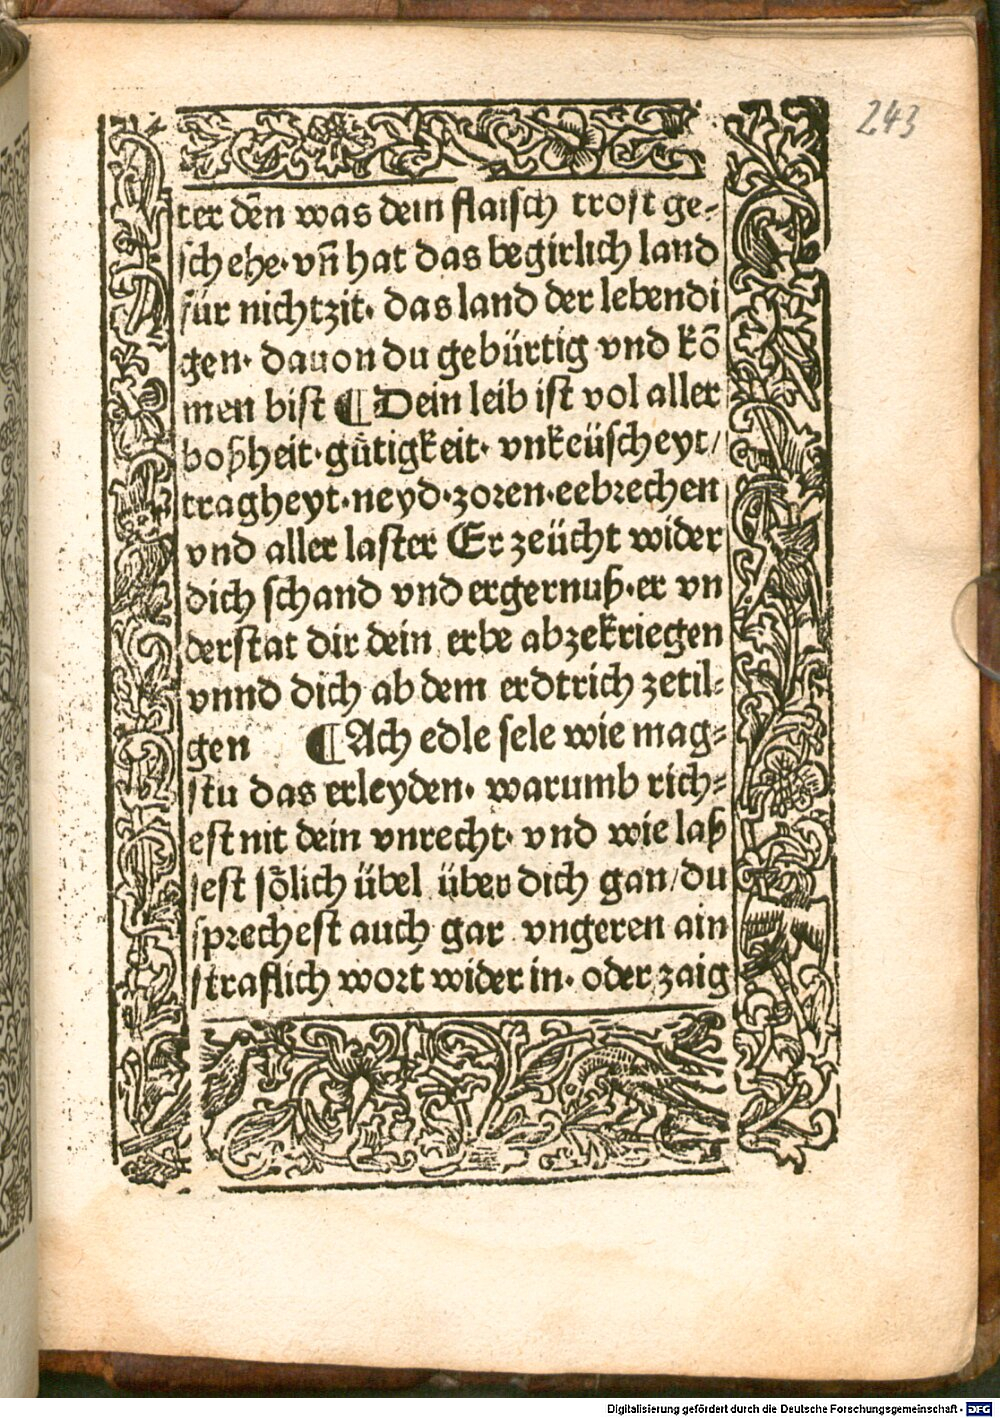 243
ter den̄ was dein flaisch trost ge⸗
schehe· vn̄ hat das begirlich land
für nichtzit· das land der lebendi
gen· dauon du gebürtig vnd kō
men bist ¶ Dein leib ist vol aller
boßheit· gütigkeit· vnkeüscheyt/
tragheyt·neyd·zoren·eebrechen
vnd aller laster Er zeücht wider
dich schand vnd ergernuß·er vn
derstat dir dein erbe abzekriegen
vnnd dich ab dem erdtrich zetil⸗
gen ¶ Ach edle sele wie mag⸗
stu das erleyden· warumb rich⸗
est nit dein vnrecht· vnd wie laß
sest soͤlich übel über dich gan/du
sprechest auch gar vngeren ain
straflich wort wider in· oder zaig
Digitalisierung gefördert durch die Deutsche Forschungsgemeinschaft - DFG